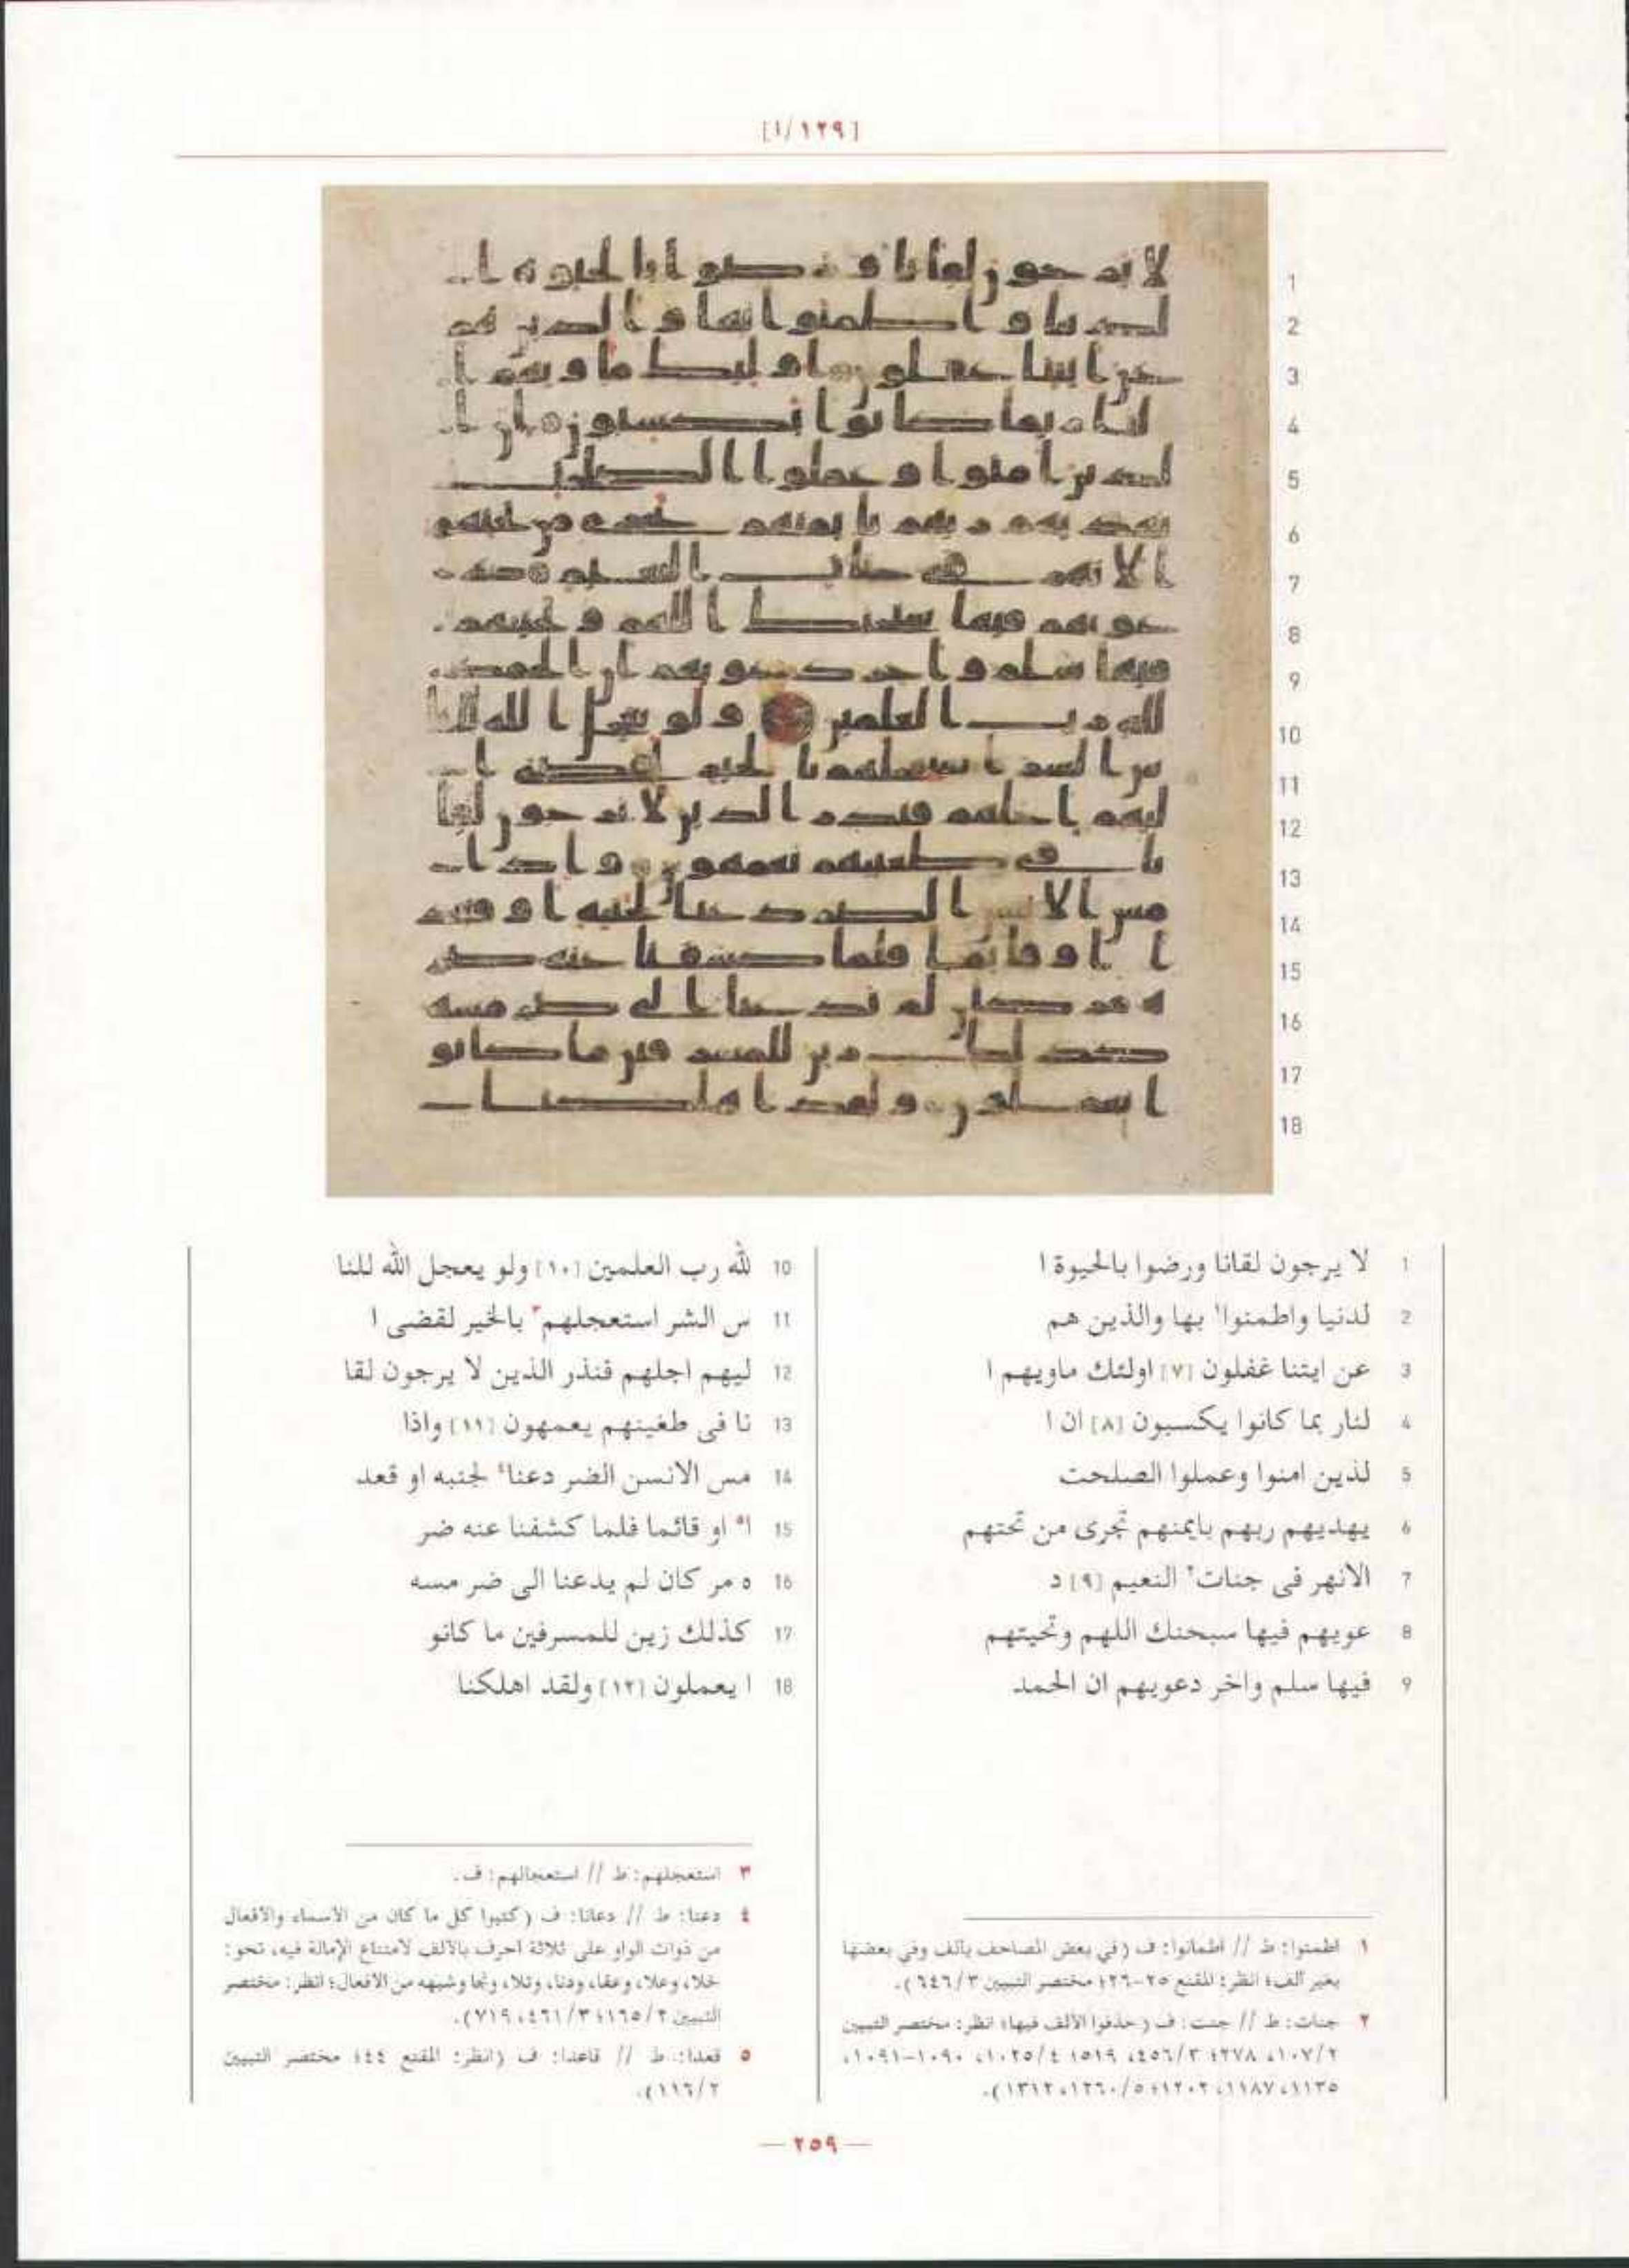 [١٢٩/١]
1 لا يرجون لقانا ورضوا بالحيوة ا
2 لدنيا واطمنوا١ بها والذين هم
3 عن ايتنا غفلون [٧] اولئك ماويهم ا
4 لنار بما كانوا يكسبون [٨] ان ا
5 لذين امنوا وعملوا الصلحت
6 يهديهم ربهم بايمنهم تجرى من تحتهم
7 الانهر فى جنات٢ النعيم [٩] د
8 عويهم فيها سبحنك اللهم وتحيتهم
9 فيها سلم واخر دعويهم ان الحمد
10 لله رب العلمين [١٠] ولو يعجل الله للنا
11 س الشر استعجلهم٣ بالخير لقضى ا
12 ليهم اجلهم فنذر الذين لا يرجون لقا
13 نا فى طغينهم يعمهون [١١] واذا
14 مس الانسن الضر دعنا٤ لجنبه او قعد
15 ا٥ او قائما فلما كشفنا عنه ضر
16 ه مر كان لم يدعنا الى ضر مسه
17 كذلك زين للمسرفين ما كانو
18 ا يعملون [١٢] ولقد اهلكنا
١ اطمنوا: ط // اطمانوا: ف (في بعض المصاحف بألف وفي بعضها
بغير ألف؛ انظر: المقنع ٢٥-٢٦؛ مختصر التبيين ٦٤٦/٣).
٢ جنات: ط // جنت: ف (حذفوا الألف فيها؛ انظر: مختصر التبيين
١٠٧/٢، ٢٧٨؛ ٤٥٦/٣، ٥١٩؛ ١٠٢٥/٤، ١٠٩٠-١٠٩١،
١١٣٥، ١١٨٧، ١٢٠٢؛ ١٢٦٠/٥، ١٣١٢).
٣ استعجلهم: ط // استعجالهم: ف.
٤ دعنا: ط // دعانا: ف (كتبوا كل ما كان من الأسماء والأفعال
من ذوات الواو على ثلاثة أحرف بالألف لامتناع الإمالة فيه، نحو:
خلا، وعلا، وعفا، ودنا، وتلا، ونجا وشبهه من الأفعال؛ انظر: مختصر
التبيين ١٦٥/٢؛ ٤٦١/٣، ٧١٩).
٥ قعدا: ط // قاعدا: ف (انظر: المقنع ٤٤؛ مختصر التبيين
١١٦/٢).
— ٢٥٩ —